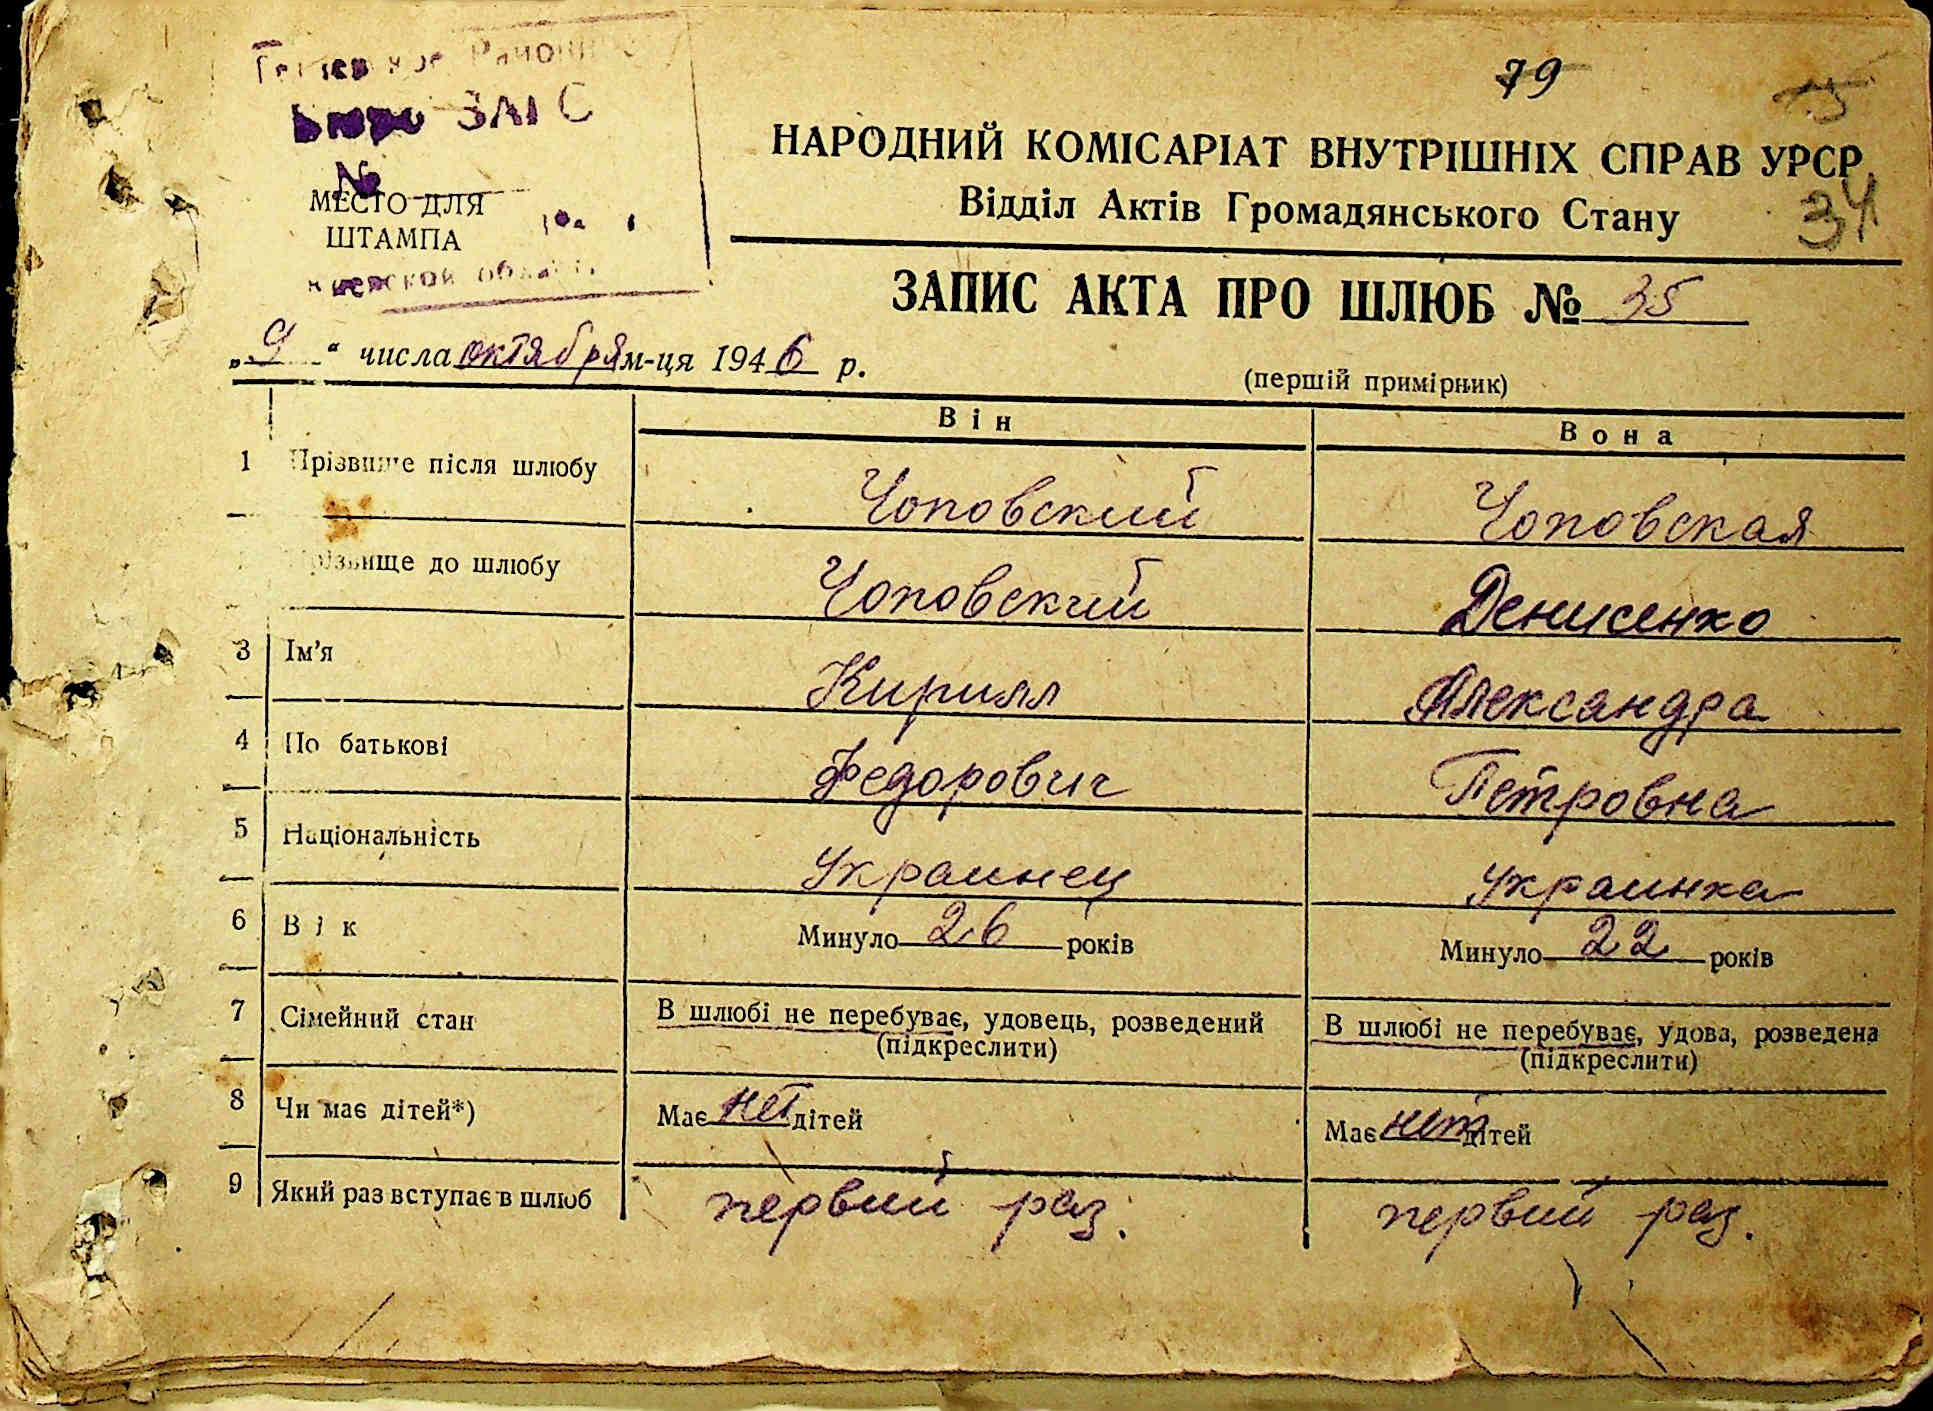 Бюро ЗАГС
№
МЕСТО ДЛЯ
ШТАМПА
79
15
34
НАРОДНИЙ КОМІСАРІАТ ВНУТРІШНІХ СПРАВ УРСР
Відділ Актів Громадянського Стану
ЗАПИС АКТА ПРО ШЛЮБ № 35
„9“ числа октября м-ця 1946 р.
(першій примірник)
Він Вона
1 Прізвище після шлюбу Чоповский Чоповская
Прізвище до шлюбу Чоповский Денисенко
3 Ім'я Кирилл Александра
4 По батькові Федорович Петровна
5 Національність Украинец Украинка
6 Вік Минуло 26 років Минуло 22 років
7 Сімейний стан В шлюбі не перебуває, удовець, розведений В шлюбі не перебуває, удова, розведена
(підкреслити) (підкреслити)
8 Чи має дітей*) Має нет дітей Має нет дітей
9 Який раз вступає в шлюб первий раз. первий раз.